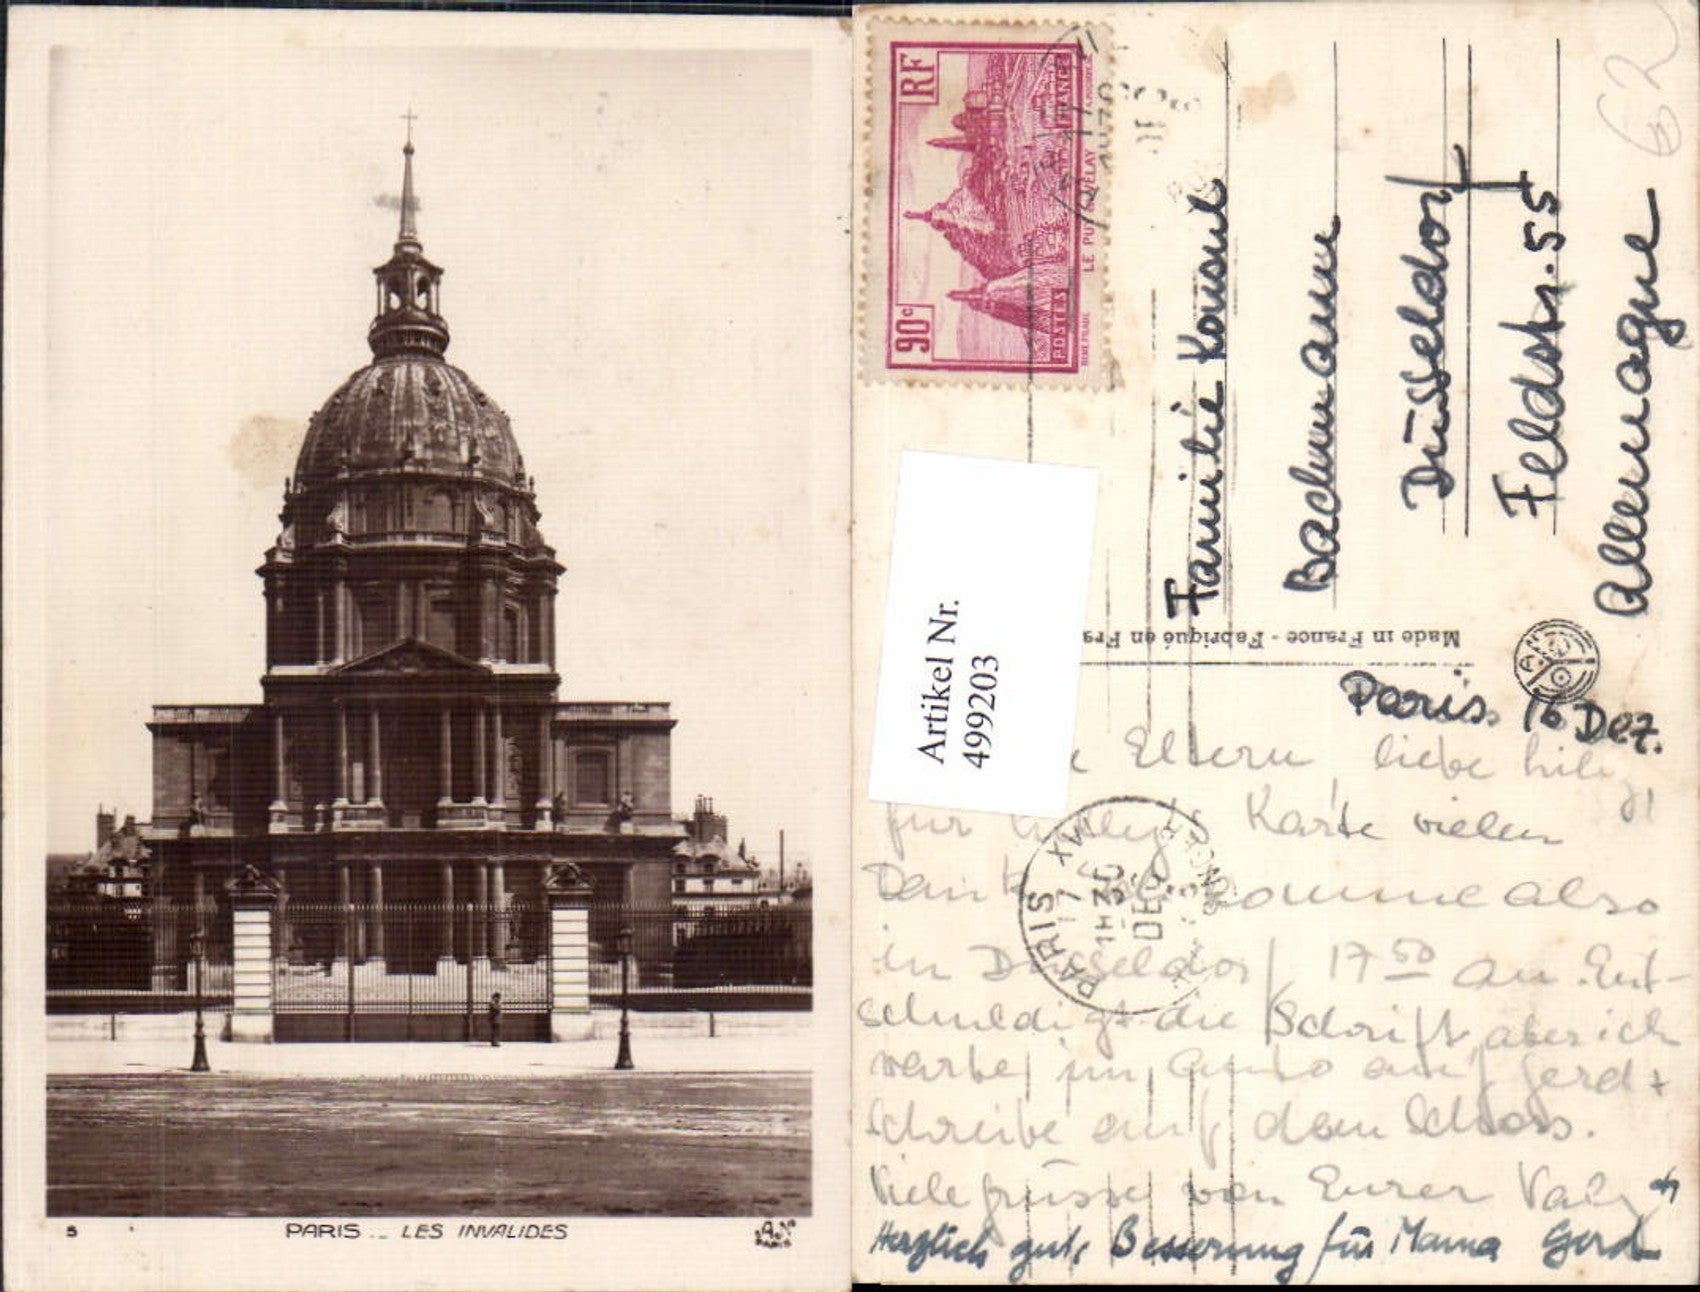 5
PARIS _ LES INVALIDES
A.N.
PARIS
RF
FRANCE
LE PUY EN VELAY
POSTES
90c
62
Familie Konsul
Bachmann
Düsseldorf
Feldstr. 55
Allemagne
Artikel Nr.
499203
Made in France - Fabriqué en Fra
Paris, 16 Dez.
Eltern, liebe
für Karte vielen
Dank komme also
in Düsseldorf 17 50 an. Ent-
schuldigt die Schrift, aber ich
warte im Auto auf Gerd +
schreibe auf dem Schoss.
Viele Grüsse von Eurer
Herzlich gute Besserung für Mama Gerd
PARIS 17
1H30
DEC